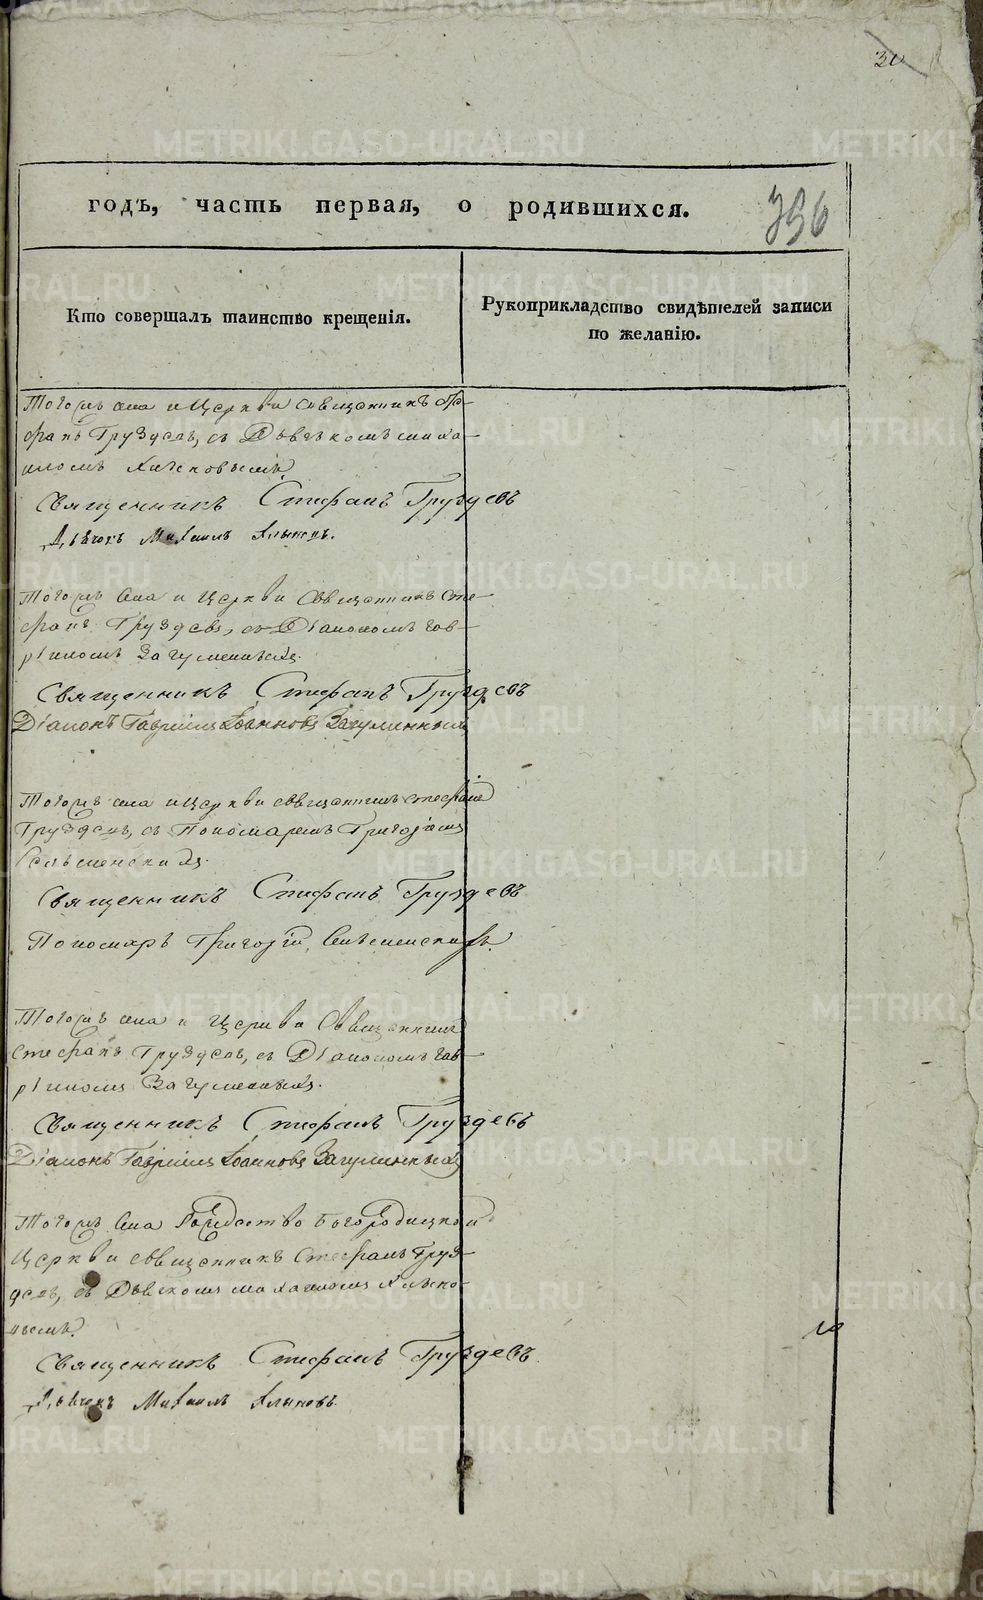 30
годъ, часть первая, о родившихся.
396
Кто совершалъ таинство крещенія.
Рукоприкладство свидѣтелей записи
по желанію.
Тогожъ села и Церкви священникъ Сте-
фанъ Груздевъ, съ Дьячкомъ Миха-
иломъ
Священникъ Стефанъ Груздевъ
Дьячокъ Михаилъ
Тогожъ села и Церкви священникъ Сте-
фанъ Груздевъ, съ Діакономъ Гав-
ріиломъ Загуменныхъ.
Священникъ Стефанъ Груздевъ
Діаконъ Гавріилъ Іоанновъ Загуменныхъ
Тогожъ села и Церкви священникъ Стефанъ
Груздевъ, съ Пономаремъ Григоріемъ
Священникъ Стефанъ Груздевъ
Пономарь Григорій
Тогожъ села и Церкви священникъ
Стефанъ Груздевъ, съ Діакономъ Гав-
ріиломъ Загуменныхъ.
Священникъ Стефанъ Груздевъ
Діаконъ Гавріилъ Іоанновъ Загуменныхъ
Тогожъ села Рождество Богородицкой
Церкви священникъ Стефанъ Груз-
девъ, съ Дьячкомъ Михаиломъ
Священникъ Стефанъ Груздевъ.
Дьячокъ Михаилъ
METRIKI.GASO-URAL.RU